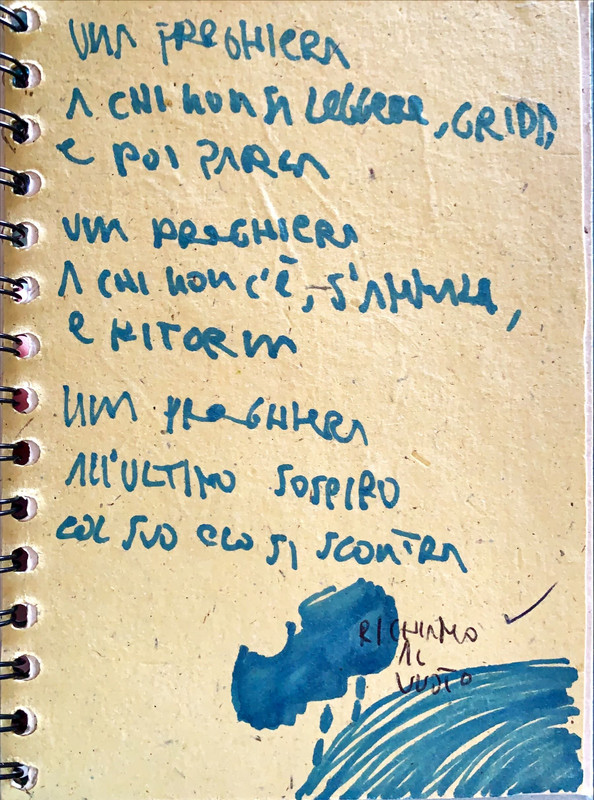 UNA PREGHIERA
A CHI NON SA LEGGERE, GRIDA,
E POI PARLA
UNA PREGHIERA
A CHI NON C'È, S'AMMALA,
E RITORNA
UNA PREGHIERA
ALL'ULTIMO SOSPIRO
COL SUO ECO SI SCONTRA
RICHIAMO
AL
VUOTO